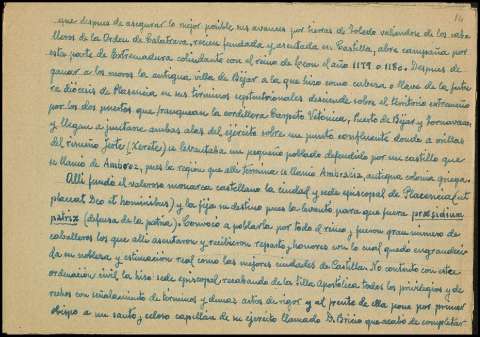 14
que despues de asegurar lo mejor posible sus avances por tierras de Toledo valiendose de los caba-
lleros de la Orden de Calatrava, recien fundada y asentada en Castilla, abre campaña por
esta parte de Extremadura colindante con el reino de Leon el año 1179 o 1180. Despues de
ganar a los moros la antigua villa de Béjar a la que hizo como cabeza o llave de la futu-
ra diocesis de Plasencia en sus términos septentrionales desciende sobre el territorio extremeño
por los dos puertos que franquean la cordillera Carpeto Vetónica, Puerto de Béjar y Tornavacas
y llegan a juntarse ambas alas del ejército sobre un punto confluente donde a orillas
del risueño Jerte (Xerete) se levantaba un pequeño poblado defendido por un castillo que
se llamó de Ambroz, pues la región que allí termina se llamó Ambrasia, antigua colonia griega.
Allí fundó el valeroso monarca castellano la ciudad y sede episcopal de Placencia (ut
placeat Deo et hominibus) y la fija su destino pues la levantó para que fuera præsidium
patriæ (defensa de la patria). Convocó a poblarla por todo el reino, y fueron gran número de
caballeros los que allí asentaron y recibieron reparto y honores con lo cual quedo engrandeci-
da en nobleza y estimación real como las mejores ciudades de Castilla. No contento con esta
ordenación civil la hizo sede episcopal, recabando de la Silla Apostólica todos los privilegios y de-
rechos con señalamiento de terminos y demas actos de rigor y al frente de ella pone por primer
obispo a un santo y celoso capellán de su ejército llamado D. Bricio que acabó de completar